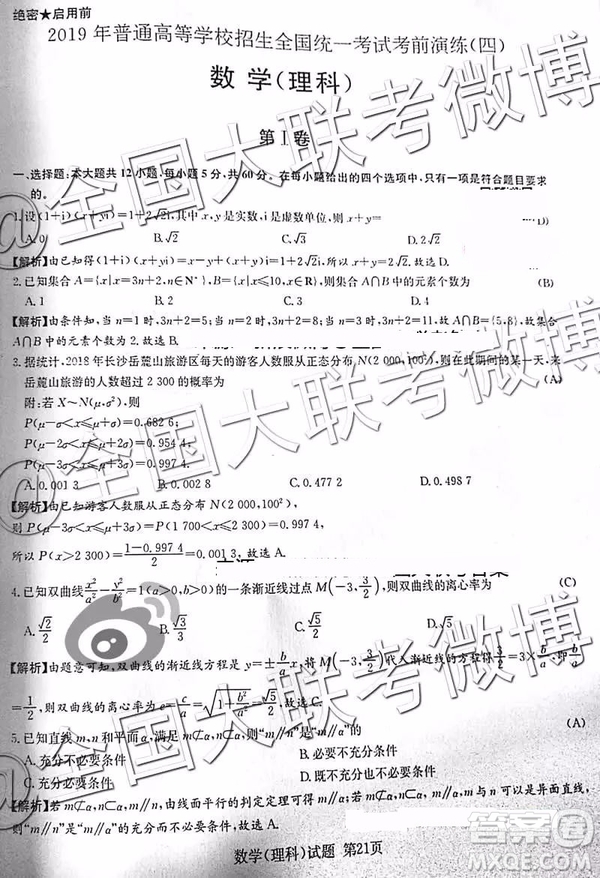 绝密★启用前
2019年普通高等学校招生全国统一考试考前演练(四)
数学(理科)
第Ⅰ卷
一、选择题:本大题共12小题,每小题5分,共60分。在每小题给出的四个选项中,只有一项是符合题目要求
的。
1.设(1+i)(x+yi)=1+2√2i,其中x,y是实数,i是虚数单位,则x+y= (D)
A.0 B.√2 C.√3 D.2√2
【解析】由已知得(1+i)(x+yi)=x-y+(x+y)i=1+2√2i,所以x+y=2√2.故选D.
2.已知集合A={x|x=3n+2,n∈N},B={x|x≤10,x∈R},则集合A∩B中的元素个数为 (B)
A.1 B.2 C.3 D.4
【解析】由条件知,当n=1时,3n+2=5;当n=2时,3n+2=8;当n=3时,3n+2=11.故A∩B={5,8},故集合
A∩B中的元素个数为2.故选B.
3.据统计,2018年长沙岳麓山旅游区每天的游客人数服从正态分布N(2 000,100²),则在此期间的某一天,来
岳麓山旅游的人数超过2 300的概率为 (A)
附:若X~N(μ,σ²),
P(μ-σ<x≤μ+σ)=0.682 6;
P(μ-2σ<x≤μ+2σ)=0.954 4,
P(μ-3σ<x≤μ+3σ)=0.997 4.
A.0.001 3 B.0.022 8 C.0.477 2 D.0.498 7
【解析】由已知游客人数服从正态分布N(2 000,100²),
则P(μ-3σ<x≤μ+3σ)=P(1 700<x≤2 300)=0.997 4,
所以P(x>2 300)=(1-0.997 4)/2=0.001 3,故选A.
4.已知双曲线x²/a²-y²/b²=1(a>0,b>0)的一条渐近线过点M(-3,3/2),则双曲线的离心率为 (C)
A.√2/2 B.√3/3 C.√5/2 D.√5
【解析】由题意可知,双曲线的渐近线方程是y=±b/a x,将M(-3,3/2)代入渐近线方程得3/2=3×b/a,即b/a
=1/2,则双曲线的离心率为e=c/a=√(1+b²/a²)=√5/2,故选C.
5.已知直线m,n和平面α,满足m⊄α,n⊂α,则"m∥n"是"m∥α"的 (A)
A.充分不必要条件 B.必要不充分条件
C.充要条件 D.既不充分也不必要条件
【解析】若m⊄α,n⊂α,m∥n,由线面平行的判定定理可得m∥α.若m⊄α,n⊂α,m∥α,则m与n可以是异面直线,
则"m∥n"是"m∥α"的充分不必要条件.
数学(理科)试题 第21页
@全国大联考微博
@全国大联考微博
答案卷